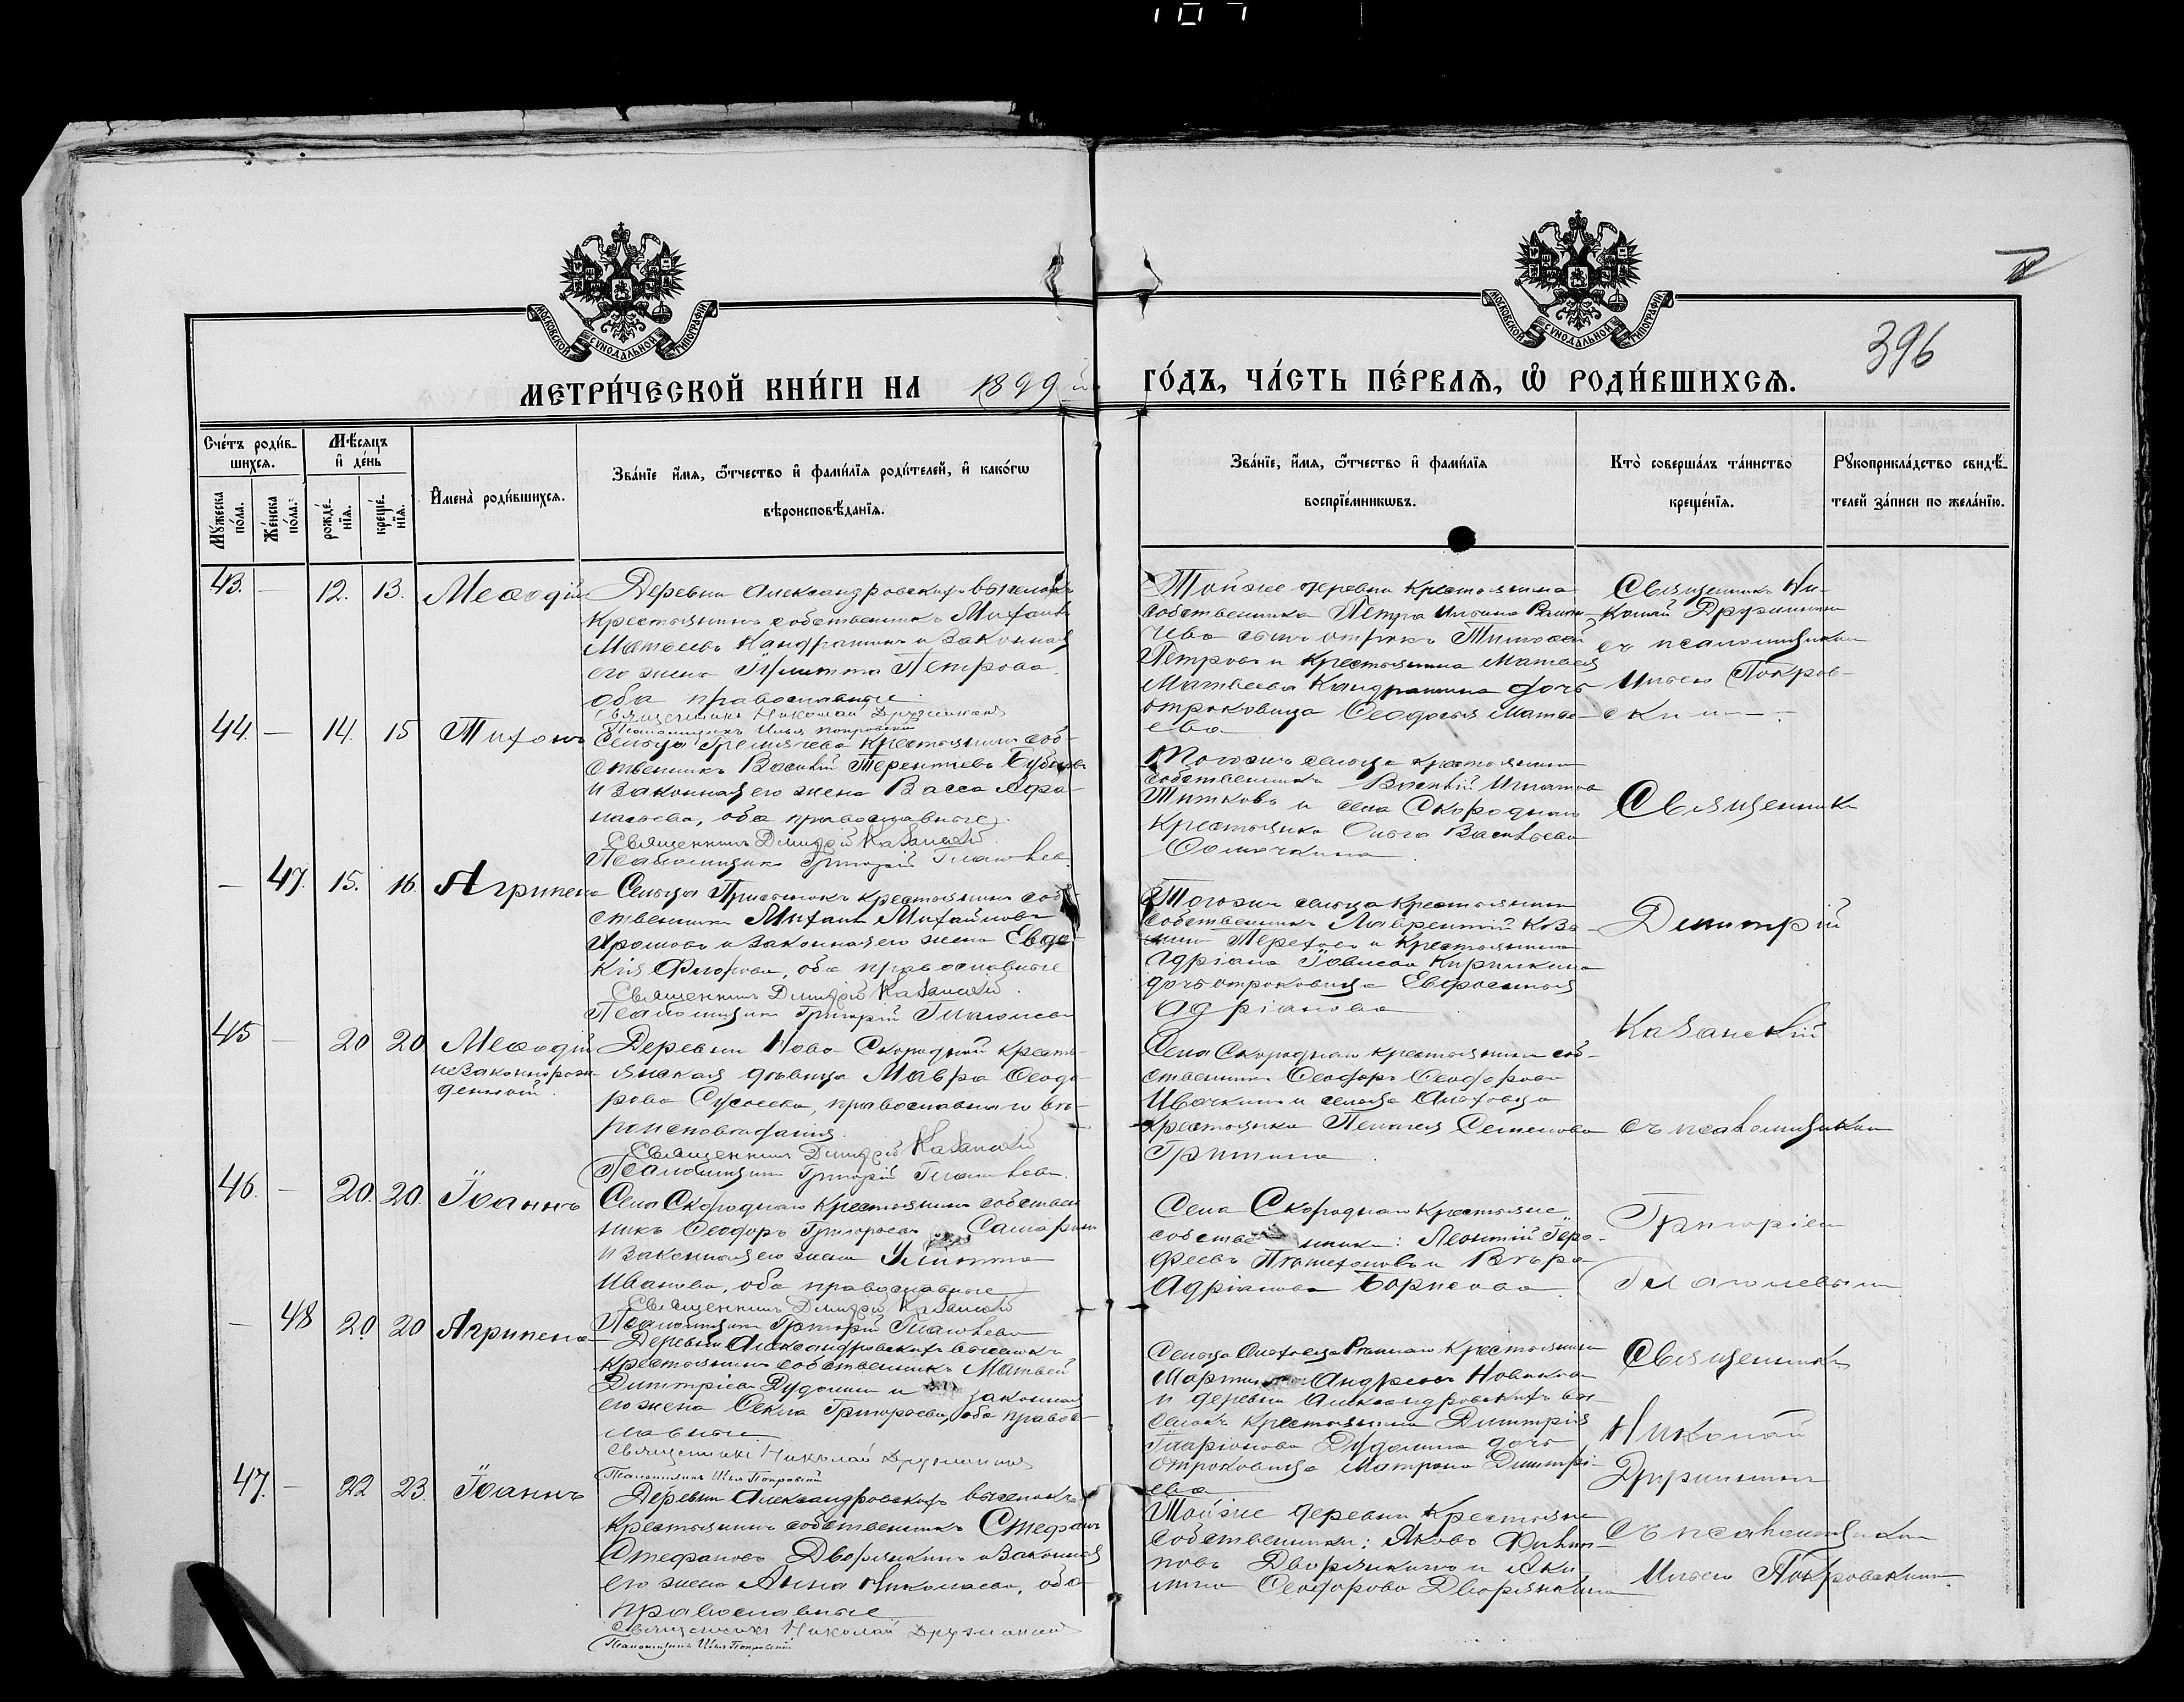 107
МОСКОВСКОЙ СѴНОДАЛЬНОЙ ТИПОГРАФІИ
МОСКОВСКОЙ СѴНОДАЛЬНОЙ ТИПОГРАФІИ
396
МЕТРИ́ЧЕСКОЙ КНИ́ГИ НА 1899 й
ГО́ДЪ, ЧА́СТЬ ПЕ́РВАѦ, Ѽ РОДИ́ВШИХСѦ.
Сче́тъ роди́в-
шихсѧ.
Мѣ́сѧцъ
и҆ де́нь
Мꙋ́жеска по́ла.
Же́нска по́ла.
рожде́-нїѧ.
креще́-нїѧ.
И҆мена̀ роди́вшихсѧ.
Зва́нїе и҆́мѧ, ѻ҆́тчество и҆ фами́лїѧ роди́телей, и҆ како́гѡ
вѣроисповѣ́данїѧ.
Зва́нїе, и҆́мѧ, ѻ҆́тчество и҆ фами́лїѧ
воспрїе́мникѡвъ.
Кто̀ соверша́лъ та́инство
креще́нїѧ.
Рꙋкоприкла́дство свидѣ́-
телей за́писи по жела́нїю.
43. — 12. 13. Меѳодій
Деревни Александровскихъ выселокъ
крестьянинъ собственникъ Михаилъ
Матѳеевъ Кандрашинъ и законная
его жена Улитта Петрова
оба православные.
Священникъ Николай Дружининъ
Псаломщикъ Илья Покровскій
Тойже деревни крестьянина
собственника Петра Ильина
сынъ отрокъ Тимоѳей
Петровъ и крестьянина Матѳея
Матвеева Кандрашина дочь
отроковица Ѳеодосья Матве-
ева
Священникъ Ни-
колай Дружининъ
съ псаломщикомъ
Ильею Покров-
скимъ.
44. — 14. 15 Тихонъ
Сельца Гремячева крестьянинъ соб-
ственникъ Василій Терентіевъ
и законная его жена Васса Аѳа-
насьева, оба православные.
Священникъ Димитрій Казанскій
Псаломщикъ Григорій Глаголевъ
Тогоже сельца крестьянинъ
собственникъ Василій Игнатовъ
Титковъ и села Скороднаго
крестьянка Ольга Васильева
— 47. 15. 16. Агрипена
Сельца крестьянинъ соб-
ственникъ Михаилъ Михайловъ
и законная его жена Евдо-
кія Фролова, оба православные
Священникъ Димитрій Казанскій
Псаломщикъ Григорій Глаголевъ
Тогоже сельца крестьянинъ
собственникъ Лаврентій
Тереховъ и крестьянина
Адріана Кирюшкина
дочь отроковица Евфросинья
Адріанова
45 — 20 20 Меѳодій
незаконнорож-
денный.
Деревни Ново-Скородной кресть-
янская дѣвица Мавра Ѳеодо-
рова Сусоева, православнаго вѣ-
роисповѣданія.
Священникъ Димитрій Казанскій
Псаломщикъ Григорій Глаголевъ
Села Скороднаго крестьянинъ соб-
ственникъ Ѳеодоръ Ѳеодоровъ
Ивочкинъ и сельца
крестьянка Пелагея Семенова
Гришина
46. — 20. 20. Іоаннъ
Села Скороднаго крестьянинъ собствен-
никъ Ѳеодоръ Григорьевъ Самаринъ
и законная его жена Улитта
Иванова, оба православные
Священникъ Димитрій Казанскій
Псаломщикъ Григорій Глаголевъ
Села Скороднаго крестьяне
собственники: Леонтій
и Вѣра
Адріанова Борисова.
Священникъ
Димитрій
Казанскій
съ псаломщикомъ
Григоріем
Глаголевымъ
— 48 20 20 Агрипена
Деревни Александровскихъ выселокъ
крестьянинъ собственникъ Матвей
Димитріевъ Дудолинъ и законная
его жена Ѳекла Григорьева, оба правос-
лавные
Священникъ Николай Дружининъ
Псаломщикъ Илья Покровскій
Сельца крестьянинъ
Мартинъ Андреевъ Новиковъ
и деревни Александровскихъ вы-
селокъ крестьянина Димитрія
Иларіонова Дудолина дочь
отроковица Матрона Димитрі-
ева
47. — 22 23. Іоаннъ
Деревни Александровскихъ выселокъ
крестьянинъ собственникъ Стефанъ
Стефановъ Дворянкинъ и законная
его жена Анна Николаева, оба
православные
Священникъ Николай Дружининъ
Псаломщикъ Илья Покровскій
Тойже деревни крестьяне
собственники: Яковъ Филип-
повъ Дворянкинъ и Аки-
лина Ѳеодорова Дворянкина
Священникъ
Николай
Дружининъ
съ псаломщикомъ
Ильею Покровскимъ